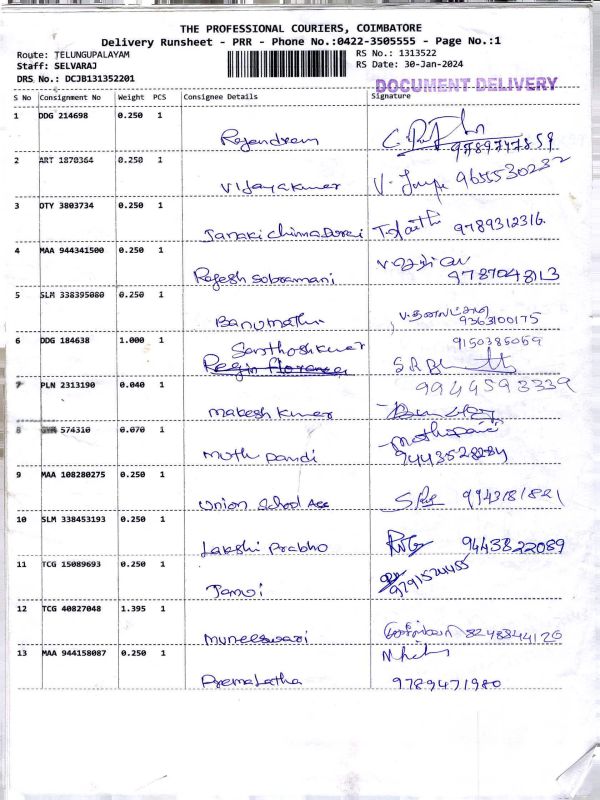 THE PROFESSIONAL COURIERS, COIMBATORE
Delivery Runsheet - PRR - Phone No.:0422-3505555 - Page No.:1
Route: TELUNGUPALAYAM
Staff: SELVARAJ
DRS No.: DCJB131352201
RS No.: 1313522
RS Date: 30-Jan-2024
DOCUMENT DELIVERY
S No Consignment No Weight PCS Consignee Details Signature
1 DDG 214698 0.250 1 Rajendran
2 ART 1870364 0.250 1 Vijayakumar 9655530232
3 DTY 3803734 0.250 1 Janaki Chinna Durai 9789312316
4 MAA 944341500 0.250 1 Rajesh Sobramani 9787048113
5 SLM 338395080 0.250 1 Banumathi 9363100175
6 DDG 184638 1.000 1 Santhosh kumar 9150385059
9944593339
7 PLN 2313190 0.040 1 makesh kumar
8 574310 0.070 1 muth pandi 9443528284
9 MAA 108280275 0.250 1 union school Ace
10 SLM 338453193 0.250 1 Lakshi Prabho 9443822089
11 TCG 15089693 0.250 1
12 TCG 40827048 1.395 1 muneeswari 8248844126
13 MAA 944158087 0.250 1 Premalatha 9789471980